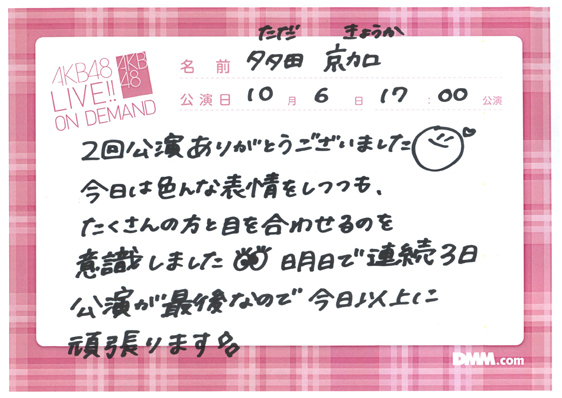 ただ きょうか
AKB48
LIVE!!
ON DEMAND
AKB
48
名前 多田 京加
公演日 10月6日 17:00公演
2回公演ありがとうございました
今日は色んな表情をしつつも、
たくさんの方と目を合わせるのを
意識しました 明日で連続3日
公演が最後なので今日以上に
頑張ります
DMM.com